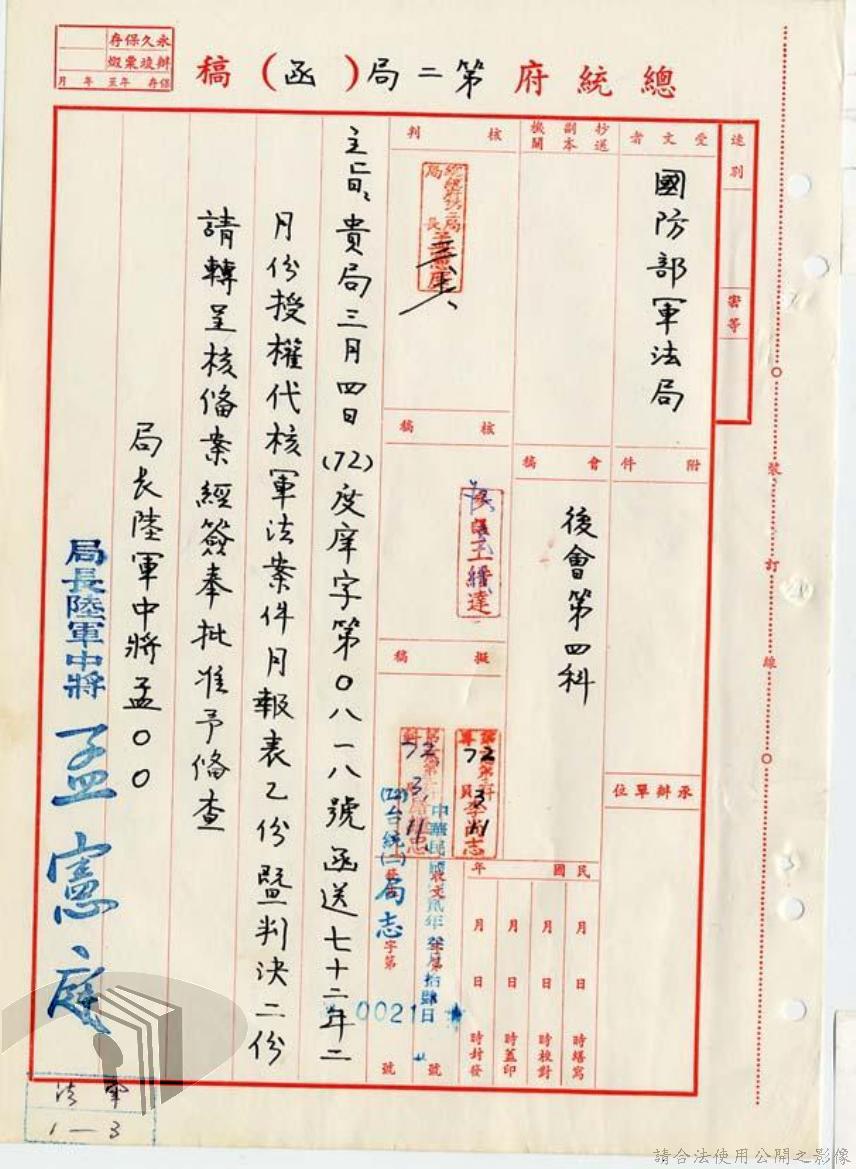 總統府第二局(函)稿
永久保存
保存 年至 年 月
速別
密等
受文者
國防部軍法局
附件
承辦單位
抄送副本機關
會稿
後會第四科
核判
核稿
王繼達
擬稿
李尚志
72
3
11
72
3
11
民國 年
月 日 時繕寫
月 日 時校對
月 日 時蓋印
月 日 時封發
中華民國 貳年 月拾肆日
(72)台統(二)局志
字第 號
0021
主旨、貴局三月四日(72)度庠字第〇八一八號函送七十二年二
月份授權代核軍法案件月報表乙份暨判決二份
請轉呈核備案經簽奉批准予備查
局長陸軍中將孟〇〇
局長陸軍中將 孟憲庭
裝
訂
線
軍法
1—3
請合法使用公開之影像